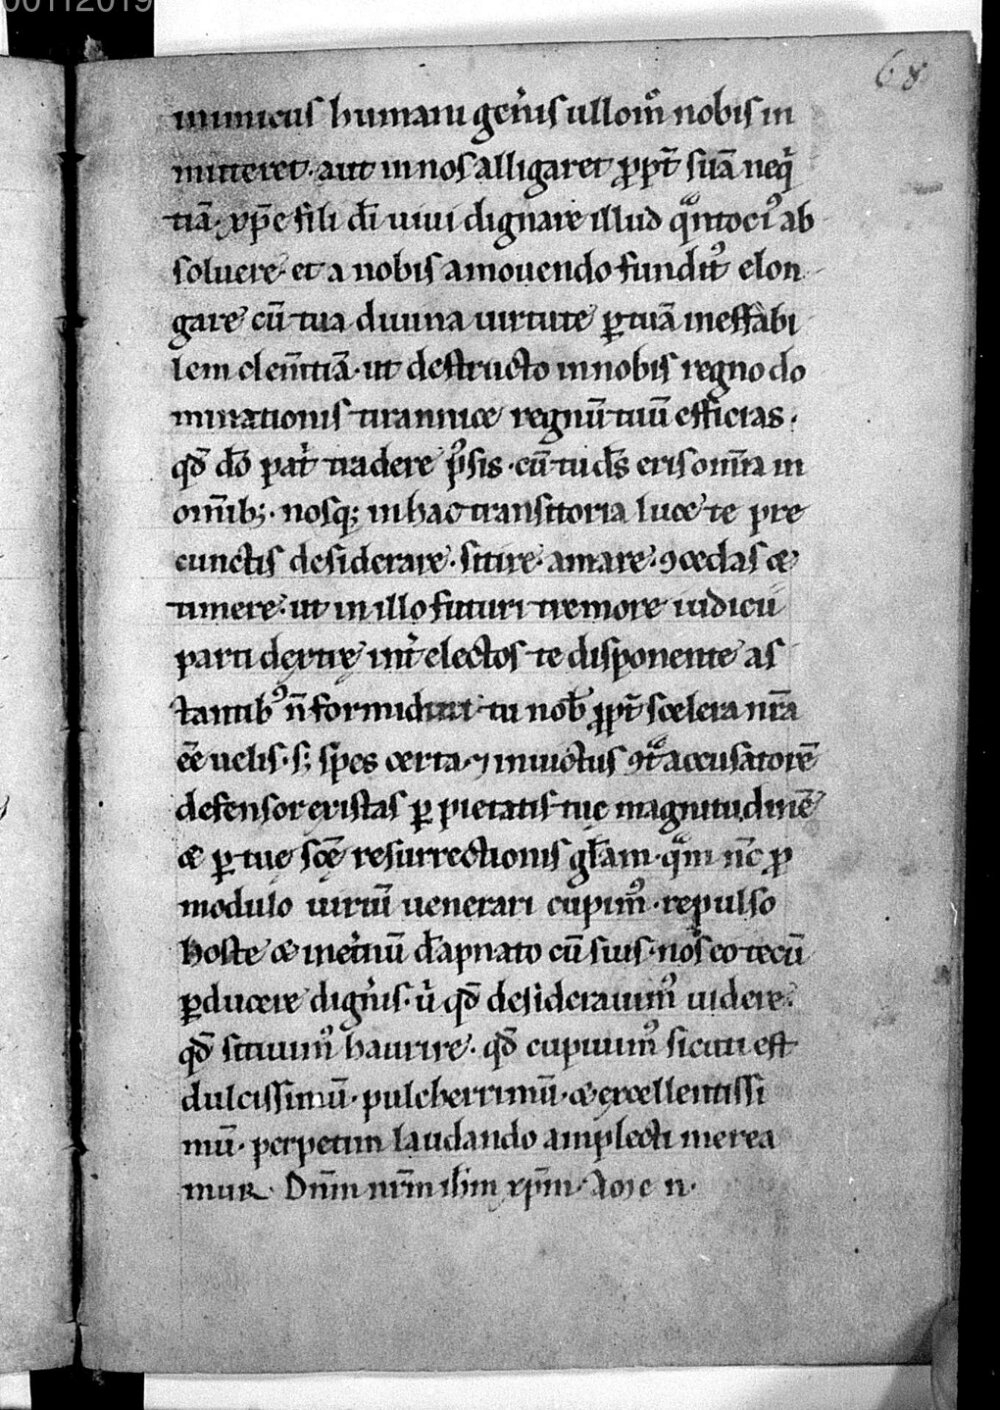 00112019
68
inimicus humani gen̄is ullom̊ nobis in
mitteret· aut in nos alligaret ꝓpt̄ suā neq̇
tiā· xp̄e fili dī uiui dignare illud qͣntociꝰ ab
soluere· et a nobis amouendo funditꝰ elon
gare cū tua diuina uirtute ꝑ tuā ineffabi
lem clem̄tiā· ut destructo in nobis regno do
minationis tirannice regnū tuū efficias·
qd̄ dō patͥ tradere pͦsis· cū tu ds̄ eris om̄ia in
om̄ib;· nosq; in hac transitoria luce te pre
cunctis desiderare· sitire· amare· ꝯcedas &
timere· ut in illo futuri tremore iudicii
parti dextrę int̄ electos te disponente as
tantibꝰ n̄ formidini tu nob̄ ꝓpt̄ scelera nr̄a
eē uelis· s; spes certa· ⁊ inuictus ꝯtͣ accusatorē
defensor existas ꝑ pietatis tuę magnitudinē
& ꝑ tuę scē resurrectionis gl̄am· qͣm nc̄ ꝓ
modulo uiriū uenerari cupimꝰ· repulso
hoste & inet̄nū dāpnato cū suis· nos eo tecū
ꝑducere dign̄is· u̇ qd̄ desiderauimꝰ uidere·
qd̄ sitiuimꝰ haurire· qd̄ cupiuimꝰ sicuti est
dulcissimū· pulcherrimū· & excellentissi
mū· perpetim laudando amplecti merea
mur. Dn̄m nr̄m ih̄m xp̄m·